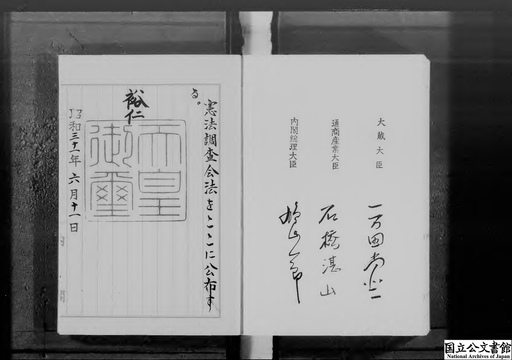 大蔵大臣
一万田尚登
通商産業大臣
石橋湛山
内閣総理大臣
鳩山一郎
憲法調査会法をここに公布す
る。
裕仁
天皇
御璽
昭和三十一年六月十一日
国立公文書館
National Archives of Japan